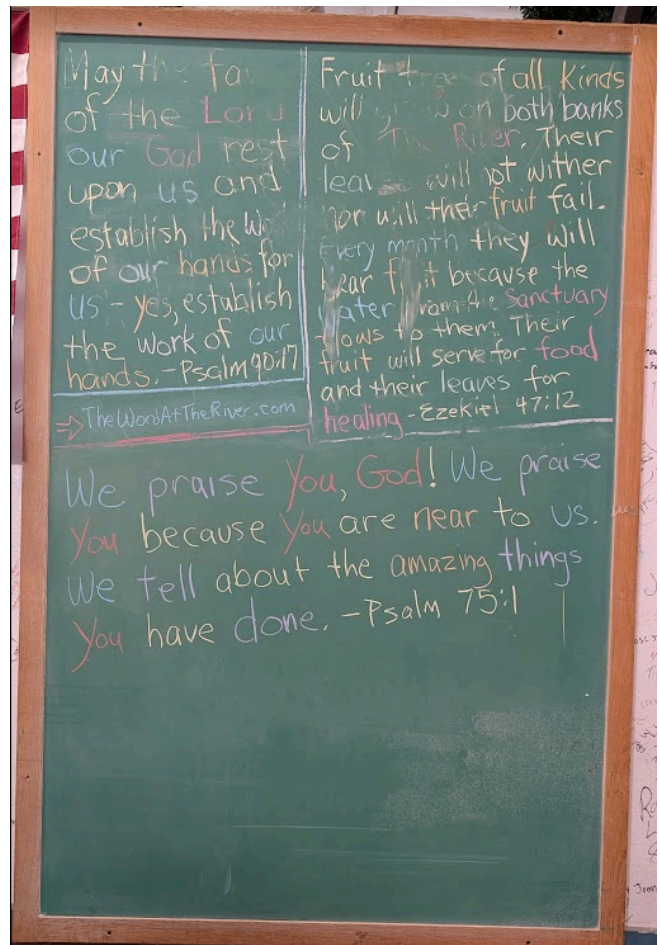 May the fa
of the Lord
our God rest
upon us and
establish the wo
of our hands for
us - yes, establish
the work of our
hands. - Psalm 90:17
→ TheWordAtTheRiver.com
Fruit tree of all kinds
will on both banks
of The River. Their
leaves will not wither
nor will their fruit fail.
Every month they will
bear fruit because the
water from the sanctuary
flows to them. Their
fruit will serve for food
and their leaves for
healing - Ezekiel 47:12
We praise You, God! We praise
You because You are near to us.
We tell about the amazing things
You have done. - Psalm 75:1